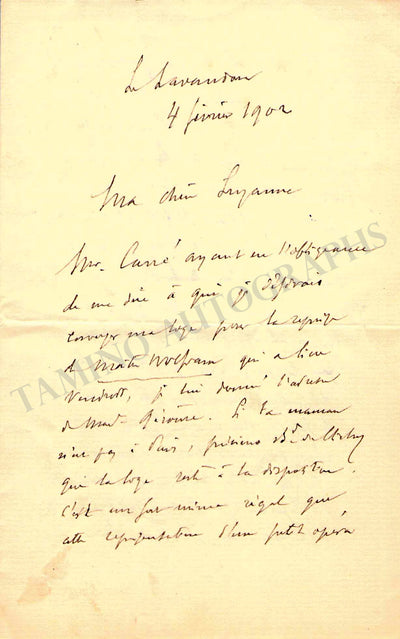 Le Lavandou
4 février 1902
Ma chère Suzanne
Mr. Carré ayant eu l'obligeance
de me dire à qui je désirais
envoyer ma loge pour la reprise
de Maître Wolfram qui a lieu
Vendredi, je lui donné l'adresse
de Mad.
Si ta maman
n'est pas à Paris,
que la loge reste à ta disposition.
C'est un fort mince régal que
cette représentation d'un petit opéra
TAMINO AUTOGRAPHS